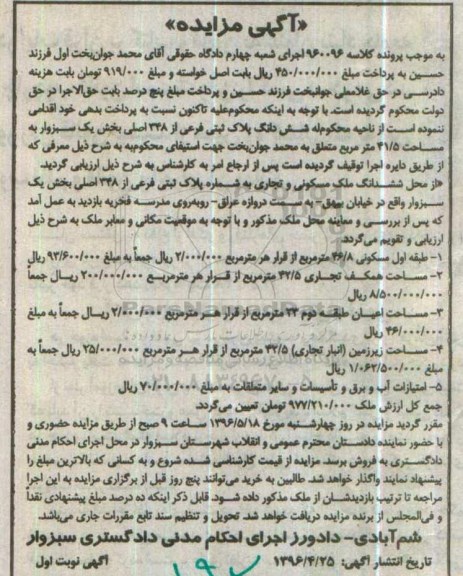 «آگهی مزایده»
به موجب پرونده کلاسه ۹۶۰۰۹۶ اجرای شعبه چهارم دادگاه حقوقی آقای محمد جوان‌بخت اول فرزند
حسین به پرداخت مبلغ ۴۵۰/۰۰۰/۰۰۰ ریال بابت اصل خواسته و مبلغ ۹۱۹/۰۰۰ تومان بابت هزینه
دادرسی در حق غلامعلی جوانبخت فرزند حسین و پرداخت مبلغ پنج درصد بابت حق‌الاجرا در حق
دولت محکوم گردیده است. با توجه به اینکه محکوم‌علیه تاکنون نسبت به پرداخت بدهی خود اقدامی
ننموده است از ناحیه محکوم‌له شش دانگ پلاک ثبتی فرعی از ۳۴۸ اصلی بخش یک سبزوار به
مساحت ۴۱/۵ متر مربع متعلق به محمد جوان‌بخت جهت استیفای محکوم‌به به شرح ذیل معرفی که
از طریق دایره اجرا توقیف گردیده است پس از ارجاع امر به کارشناس به شرح ذیل ارزیابی گردید.
«از محل ششدانگ ملک مسکونی و تجاری به شماره پلاک ثبتی فرعی از ۳۴۸ اصلی بخش یک
سبزوار واقع در خیابان بیهق- به سمت دروازه عراق- روبه‌روی مدرسه فخریه بازدید به عمل آمد
که پس از بررسی و معاینه محل ملک مذکور و با توجه به موقعیت مکانی و معابر ملک به شرح ذیل
ارزیابی و تقویم می‌گردد.
۱- طبقه اول مسکونی ۴۶/۸ مترمربع از قرار هر مترمربع ۲/۰۰۰/۰۰۰ ریال جمعاً به مبلغ ۹۳/۶۰۰/۰۰۰ ریال
۲- مساحت همکف تجاری ۴۲/۵ مترمربع از قرار هر مترمربع ۲۰۰/۰۰۰/۰۰۰ ریال جمعاً
۸/۵۰۰/۰۰۰/۰۰۰ ریال
۳- مساحت اعیان طبقه دوم ۲۳ مترمربع از قرار هر مترمربع ۲/۰۰۰/۰۰۰ ریال جمعاً به مبلغ
۴۶/۰۰۰/۰۰۰ ریال
۴- مساحت زیرزمین (انبار تجاری) ۴۲/۵ مترمربع از قرار هر مترمربع ۲۵/۰۰۰/۰۰۰ ریال جمعاً به
مبلغ ۱/۰۶۲/۵۰۰/۰۰۰ ریال
۵- امتیازات آب و برق و تأسیسات و سایر متعلقات به مبلغ ۷۰/۰۰۰/۰۰۰ ریال
جمع کل ارزش ملک ۹۷۷/۲۱۰/۰۰۰ تومان تعیین می‌گردد.
مقرر گردید مزایده در روز چهارشنبه مورخ ۱۳۹۶/۵/۱۸ ساعت ۹ صبح از طریق مزایده حضوری و
با حضور نماینده دادستان محترم عمومی و انقلاب شهرستان سبزوار در محل اجرای احکام مدنی
دادگستری به فروش برسد. مزایده از قیمت کارشناسی شده شروع و به کسانی که بالاترین مبلغ را
پیشنهاد نمایند واگذار خواهد شد. طالبین به خرید می‌توانند پنج روز قبل از برگزاری مزایده به این اجرا
مراجعه تا ترتیب بازدیدشان از ملک مذکور داده شود. قابل ذکر اینکه ده درصد مبلغ پیشنهادی نقداً
و فی‌المجلس از برنده مزایده دریافت خواهد شد. تحویل و تنظیم سند تابع مقررات جاری می‌باشد.
شم‌آبادی- دادورز اجرای احکام مدنی دادگستری سبزوار
تاریخ انتشار آگهی: ۱۳۹۶/۴/۲۵ آگهی نوبت اول